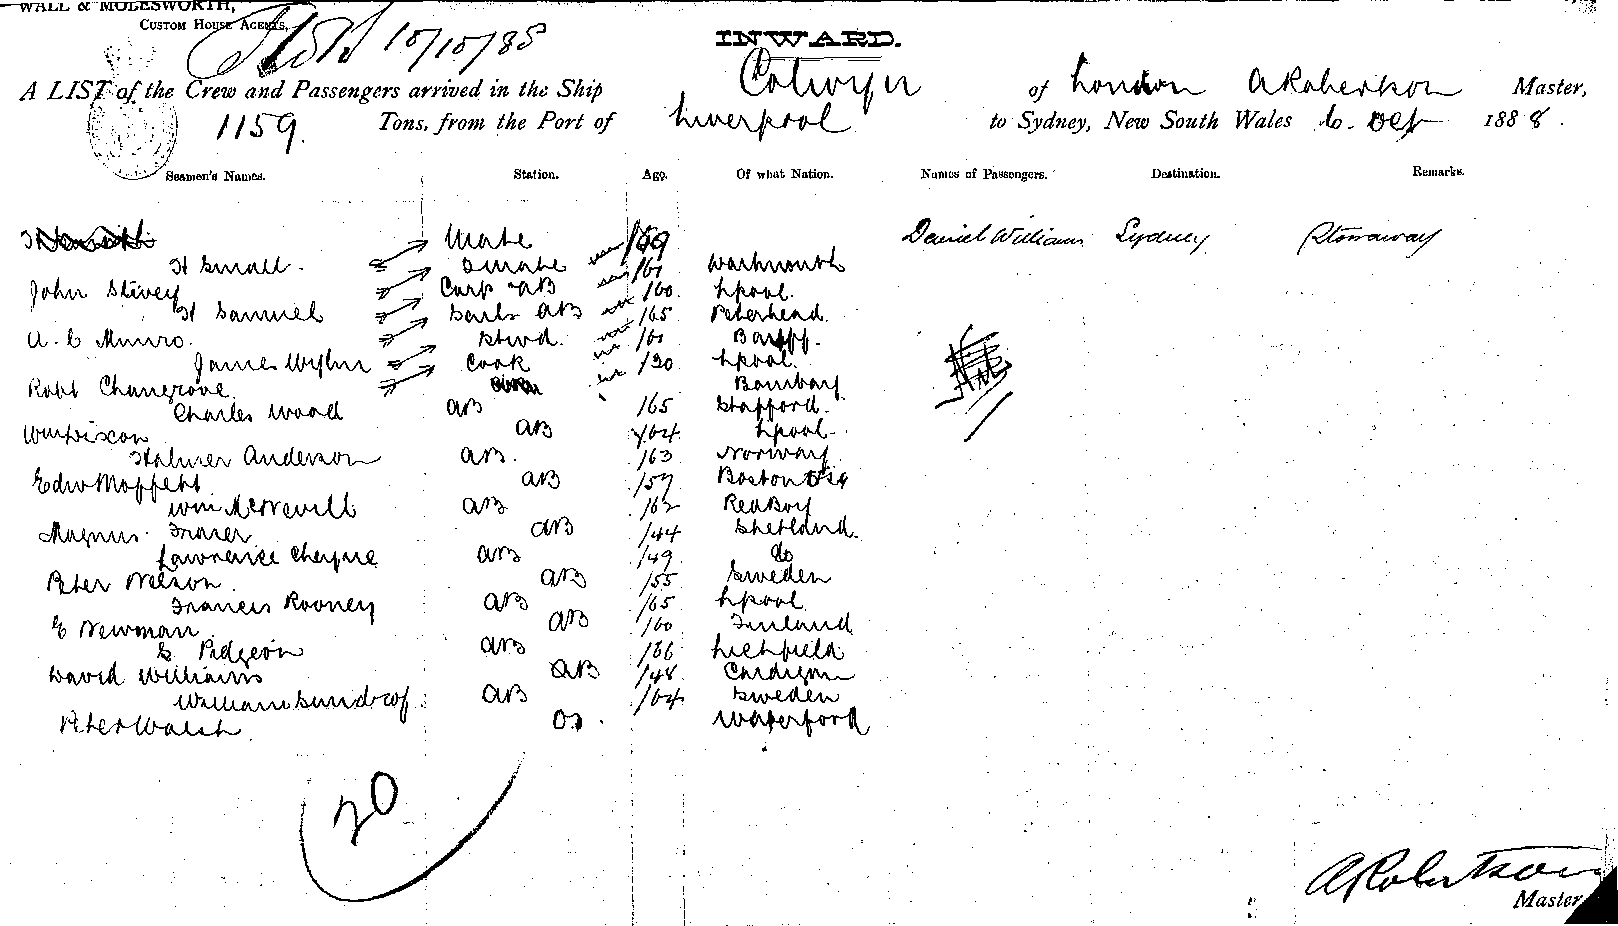 WALL & MOLESWORTH,
CUSTOM HOUSE AGENTS,
10/10/88
INWARD.
A LIST of the Crew and Passengers arrived in the Ship Colwyn of London A Robertson Master,
1159 Tons, from the Port of Liverpool to Sydney, New South Wales 6 Oct 1888.
Seamen's Names. Station. Age. Of what Nation. Names of Passengers. Destination. Remarks.
Mate Daniel Williams Sydney Stowaway
H Small. 2 Mate Warkworth
John Stivey Carp AB 160 Lpool.
H Samuel Sails AB 165 Peterhead
A. C Munro. Stwd. Banff.
James Cook 130 Lpool.
Robt Bombay
Charles Wood AB 165 Stafford.
Wm Dixon AB 164 Lpool.
Anderson AB. 163 Norway
Edw Moffett AB 159 Boston
Wm McNevill AB 162 Red Boy
Magnus Fraser AB 144 Shetland.
Lawrence Cheyne AB 149 do
Peter Nelson AB 155 Sweden
Francis Rooney AB 165 Lpool
E Newman AB 160 Finland
G Pidgeon AB 166 Lichfield
David Williams AB 148 Cardigan
William AB 164 Sweden
Peter Walsh OS. Waterford
20
A Robertson
Master